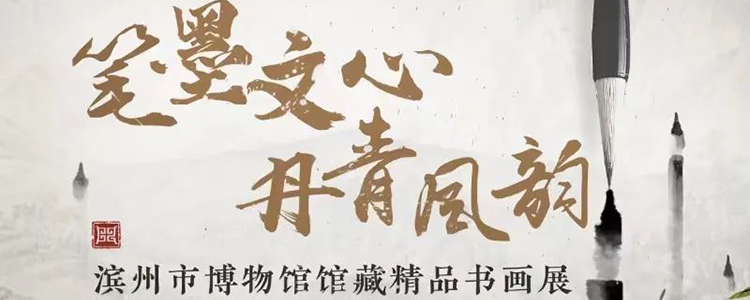 笔墨文心
丹青风韵
滨州市博物馆馆藏精品书画展